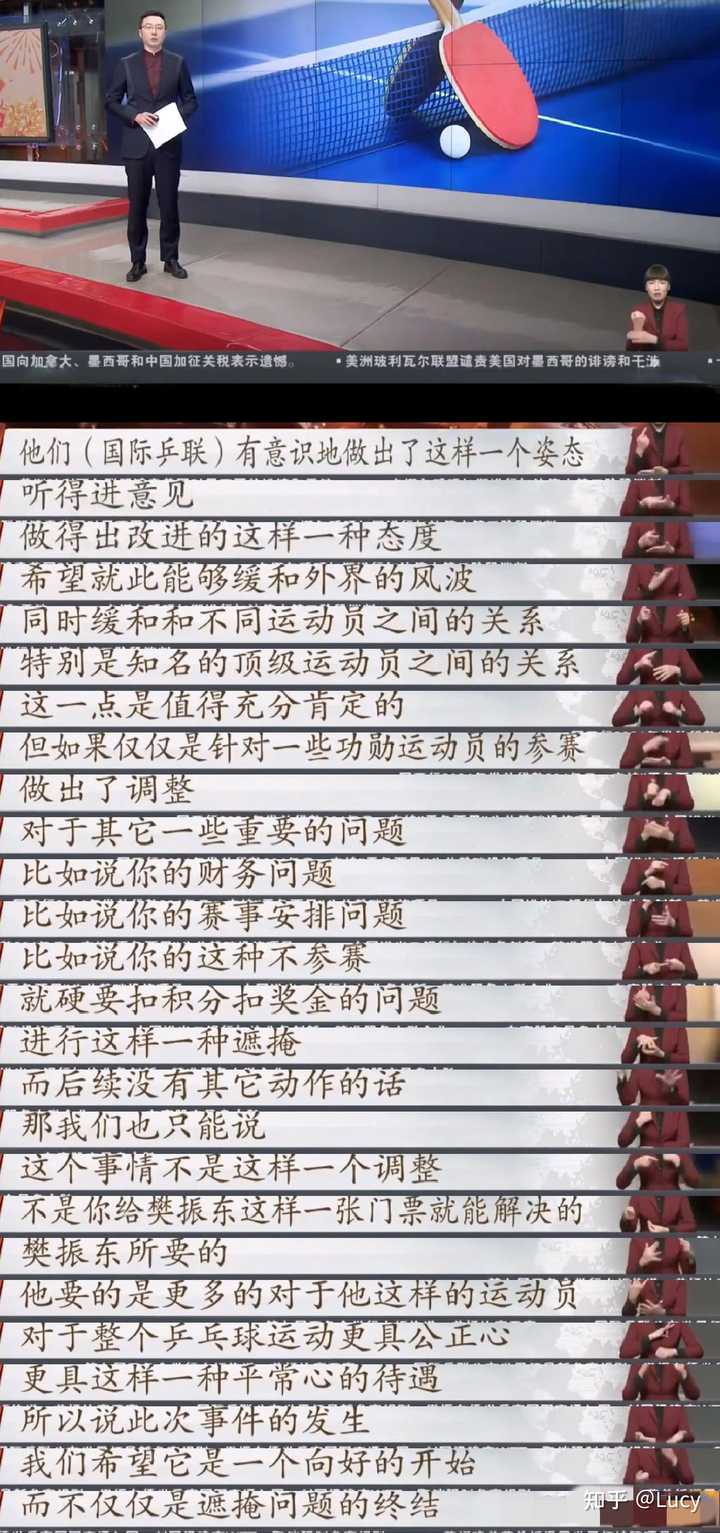 国向加拿大、墨西哥和中国加征关税表示遗憾。 •美洲玻利瓦尔联盟谴责美国对墨西哥的诽谤和干涉
他们（国际乒联）有意识地做出了这样一个姿态
听得进意见
做得出改进的这样一种态度
希望就此能够缓和外界的风波
同时缓和和不同运动员之间的关系
特别是知名的顶级运动员之间的关系
这一点是值得充分肯定的
但如果仅仅是针对一些功勋运动员的参赛
做出了调整
对于其它一些重要的问题
比如说你的财务问题
比如说你的赛事安排问题
比如说你的这种不参赛
就硬要扣积分扣奖金的问题
进行这样一种遮掩
而后续没有其它动作的话
那我们也只能说
这个事情不是这样一个调整
不是你给樊振东这样一张门票就能解决的
樊振东所要的
他要的是更多的对于他这样的运动员
对于整个乒乓球运动更具公正心
更具这样一种平常心的待遇
所以说此次事件的发生
我们希望它是一个向好的开始
而不仅仅是遮掩问题的终结
知乎 @Lucy